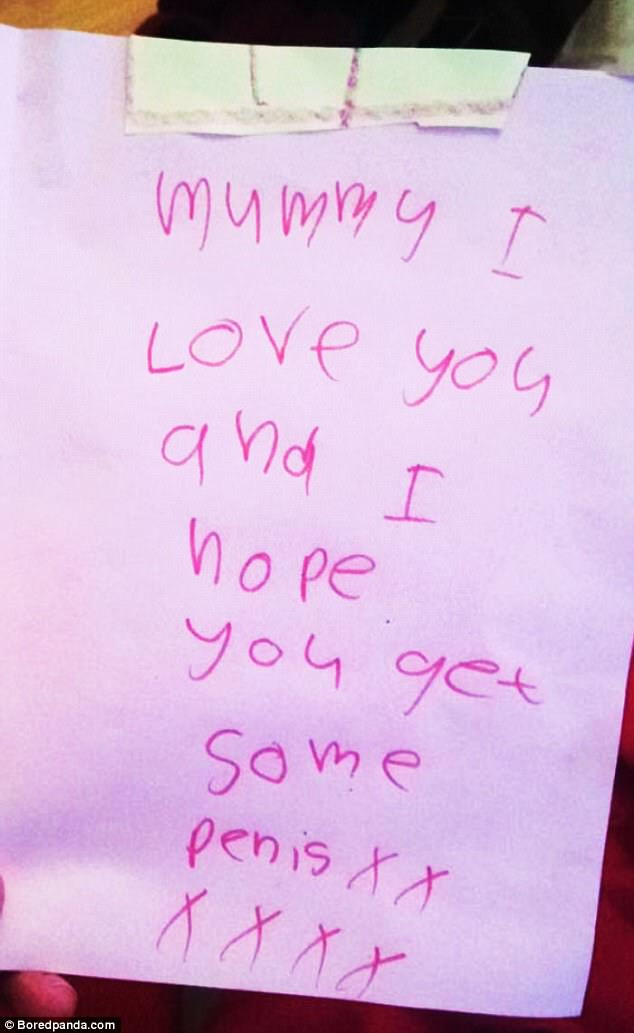 mummy I
Love you
and I
hope
you get
some
penis x x
x x x x
© Boredpanda.com